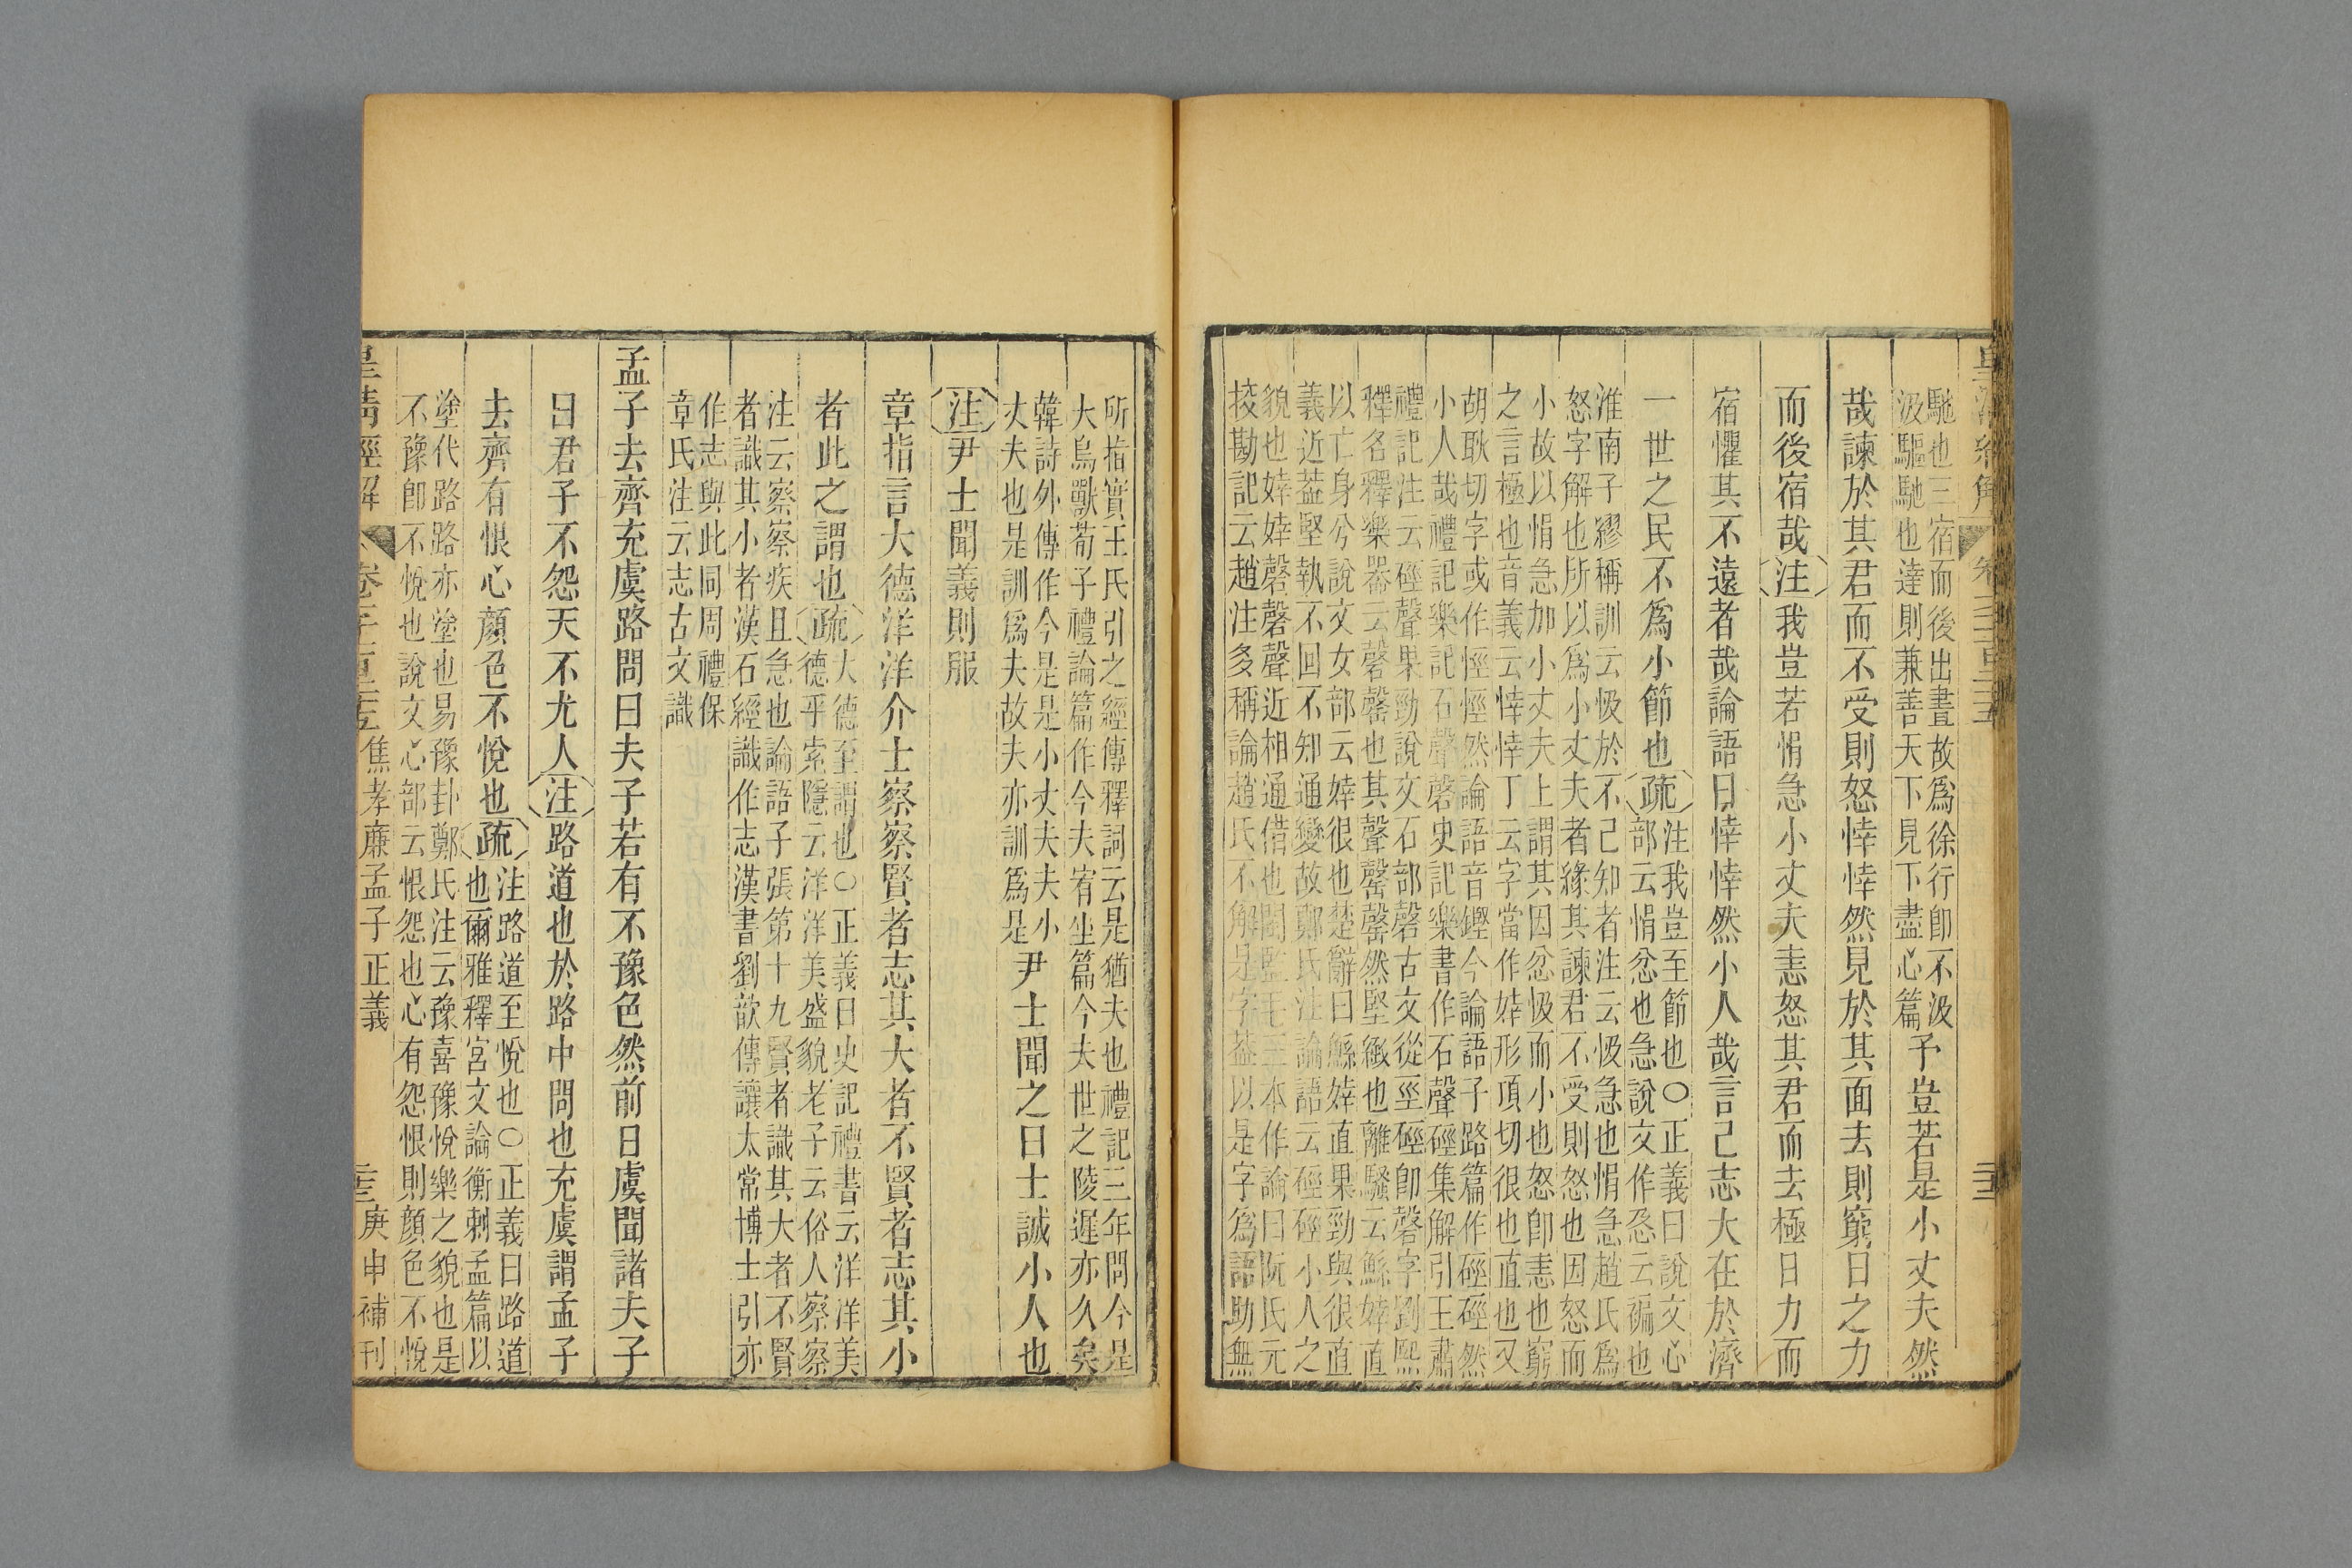 馳也三宿而後出晝故爲徐行卽不汲
汲驅馳也達則兼善天下見下盡心篇予豈若是小丈夫然
哉諫於其君而不受則怒悻悻然見於其面去則窮日之力
而後宿哉注我豈若悁急小丈夫恚怒其君而去極日力而
宿懼其不遠者哉論語曰悻悻然小人哉言己志大在於濟
一世之民不爲小節也疏注我豈至節也○正義曰說文心
部云悁忿也急說文作㤂云褊也
淮南子繆稱訓云伋於不己知者注云伋急也悁急趙氏爲
怒字解也所以爲小丈夫者緣其諫君不受則怒也因怒而
小故以悁急加小丈夫上謂其因忿伋而小也怒卽恚也窮
之言極也音義云悻悻丁云字當作婞形頂切很也直也又
胡耿切字或作悻悻然論語音鏗今論語子路篇作硜硜然
小人哉禮記樂記石聲磬史記樂書作石聲硜集解引王肅
禮記注云硜聲果勁說文石部磬古文從巠硜卽磬字劉熙
釋名釋樂器云磬罄也其聲罄罄然堅緻也離騷云鯀婞直
以亡身兮說文女部云婞很也楚辭曰鯀婞直果勁與很直
義近葢堅執不回不知通變故鄭氏注論語云硜硜小人之
貌也婞婞磬磬聲近相通借也閩監毛三本作論曰阮氏元
挍勘記云趙注多稱論趙氏不解是字葢以是字爲語助無
所指實王氏引之經傳釋詞云是猶夫也禮記三年問今是
大鳥獸荀子禮論篇作今夫宥坐篇今夫世之陵遲亦久矣
韓詩外傳作今是是小丈夫夫小
丈夫也是訓爲夫故夫亦訓爲是尹士聞之曰士誠小人也
注尹士聞義則服
章指言大德洋洋介士察察賢者志其大者不賢者志其小
者此之謂也疏大德至謂也○正義曰史記禮書云洋洋美
德乎索隱云洋洋美盛貌老子云俗人察察
注云察察疾且急也論語子張第十九賢者識其大者不賢
者識其小者漢石經識作志漢書劉歆傳讓太常博士引亦
作志與此同周禮保
章氏注云志古文識
孟子去齊充虞路問曰夫子若有不豫色然前日虞聞諸夫子
曰君子不怨天不尤人注路道也於路中問也充虞謂孟子
去齊有恨心顏色不悅也疏注路道至悅也○正義曰路道
也爾雅釋宮文論衡刺孟篇以
塗代路路亦塗也易豫卦鄭氏注云豫喜豫悅樂之貌也是
不豫卽不悅也說文心部云恨怨也心有怨恨則顏色不悅
皇清經解 焦孝廉孟子正義 庚申補刊